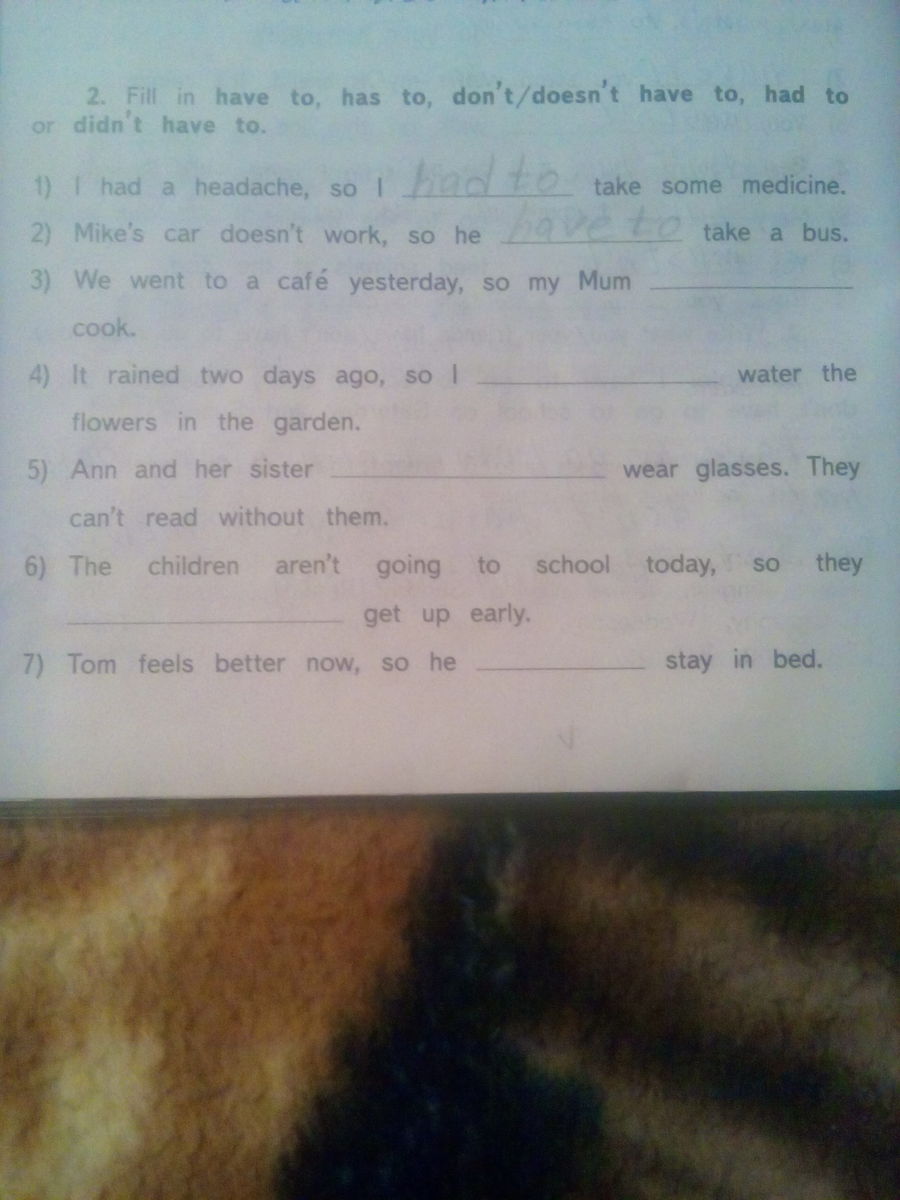 2. Fill in have to, has to, don't/doesn't have to, had to
or didn't have to.
1) I had a headache, so I had to take some medicine.
2) Mike's car doesn't work, so he have to take a bus.
3) We went to a café yesterday, so my Mum
cook.
4) It rained two days ago, so I water the
flowers in the garden.
5) Ann and her sister wear glasses. They
can't read without them.
6) The children aren't going to school today, so they
get up early.
7) Tom feels better now, so he stay in bed.